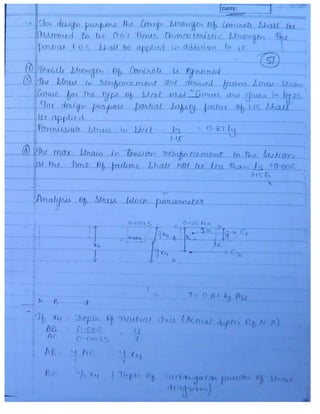 DATE:
→ For design purpose the Comp. Strength of Concrete shall be
assumed to be 0.67 times Characteristic Strength. The
partial F.O.S. shall be applied in addition to it.
(51)
Tensile Strength of Concrete is ignored
The Stress in reinforcement are derived from Stress Strain
Curve for the type of Steel used. Curves are given in fig 23
For design purpose partial Safety factor of 1.15 Shall
be applied.
Permissible Stress in Steel = fy = 0.87 fy
1.15
(d) The max. Strain in tension reinforcement in the Section
at the time of failure Shall not be less than fy + 0.002
1.15 Es
Analysis of Stress block parameter
0.0035
0.45 fck
C1
C2
T = 0.87 fy Ast
If xu = Depth of neutral axis (Actual depth of N.A)
AB = 0.002 = 4
AC 0.0035 7
AB = 4 AC = 4 xu
7 7
BC = 3/7 xu (Depth of rectangular portion of Stress
diagram)